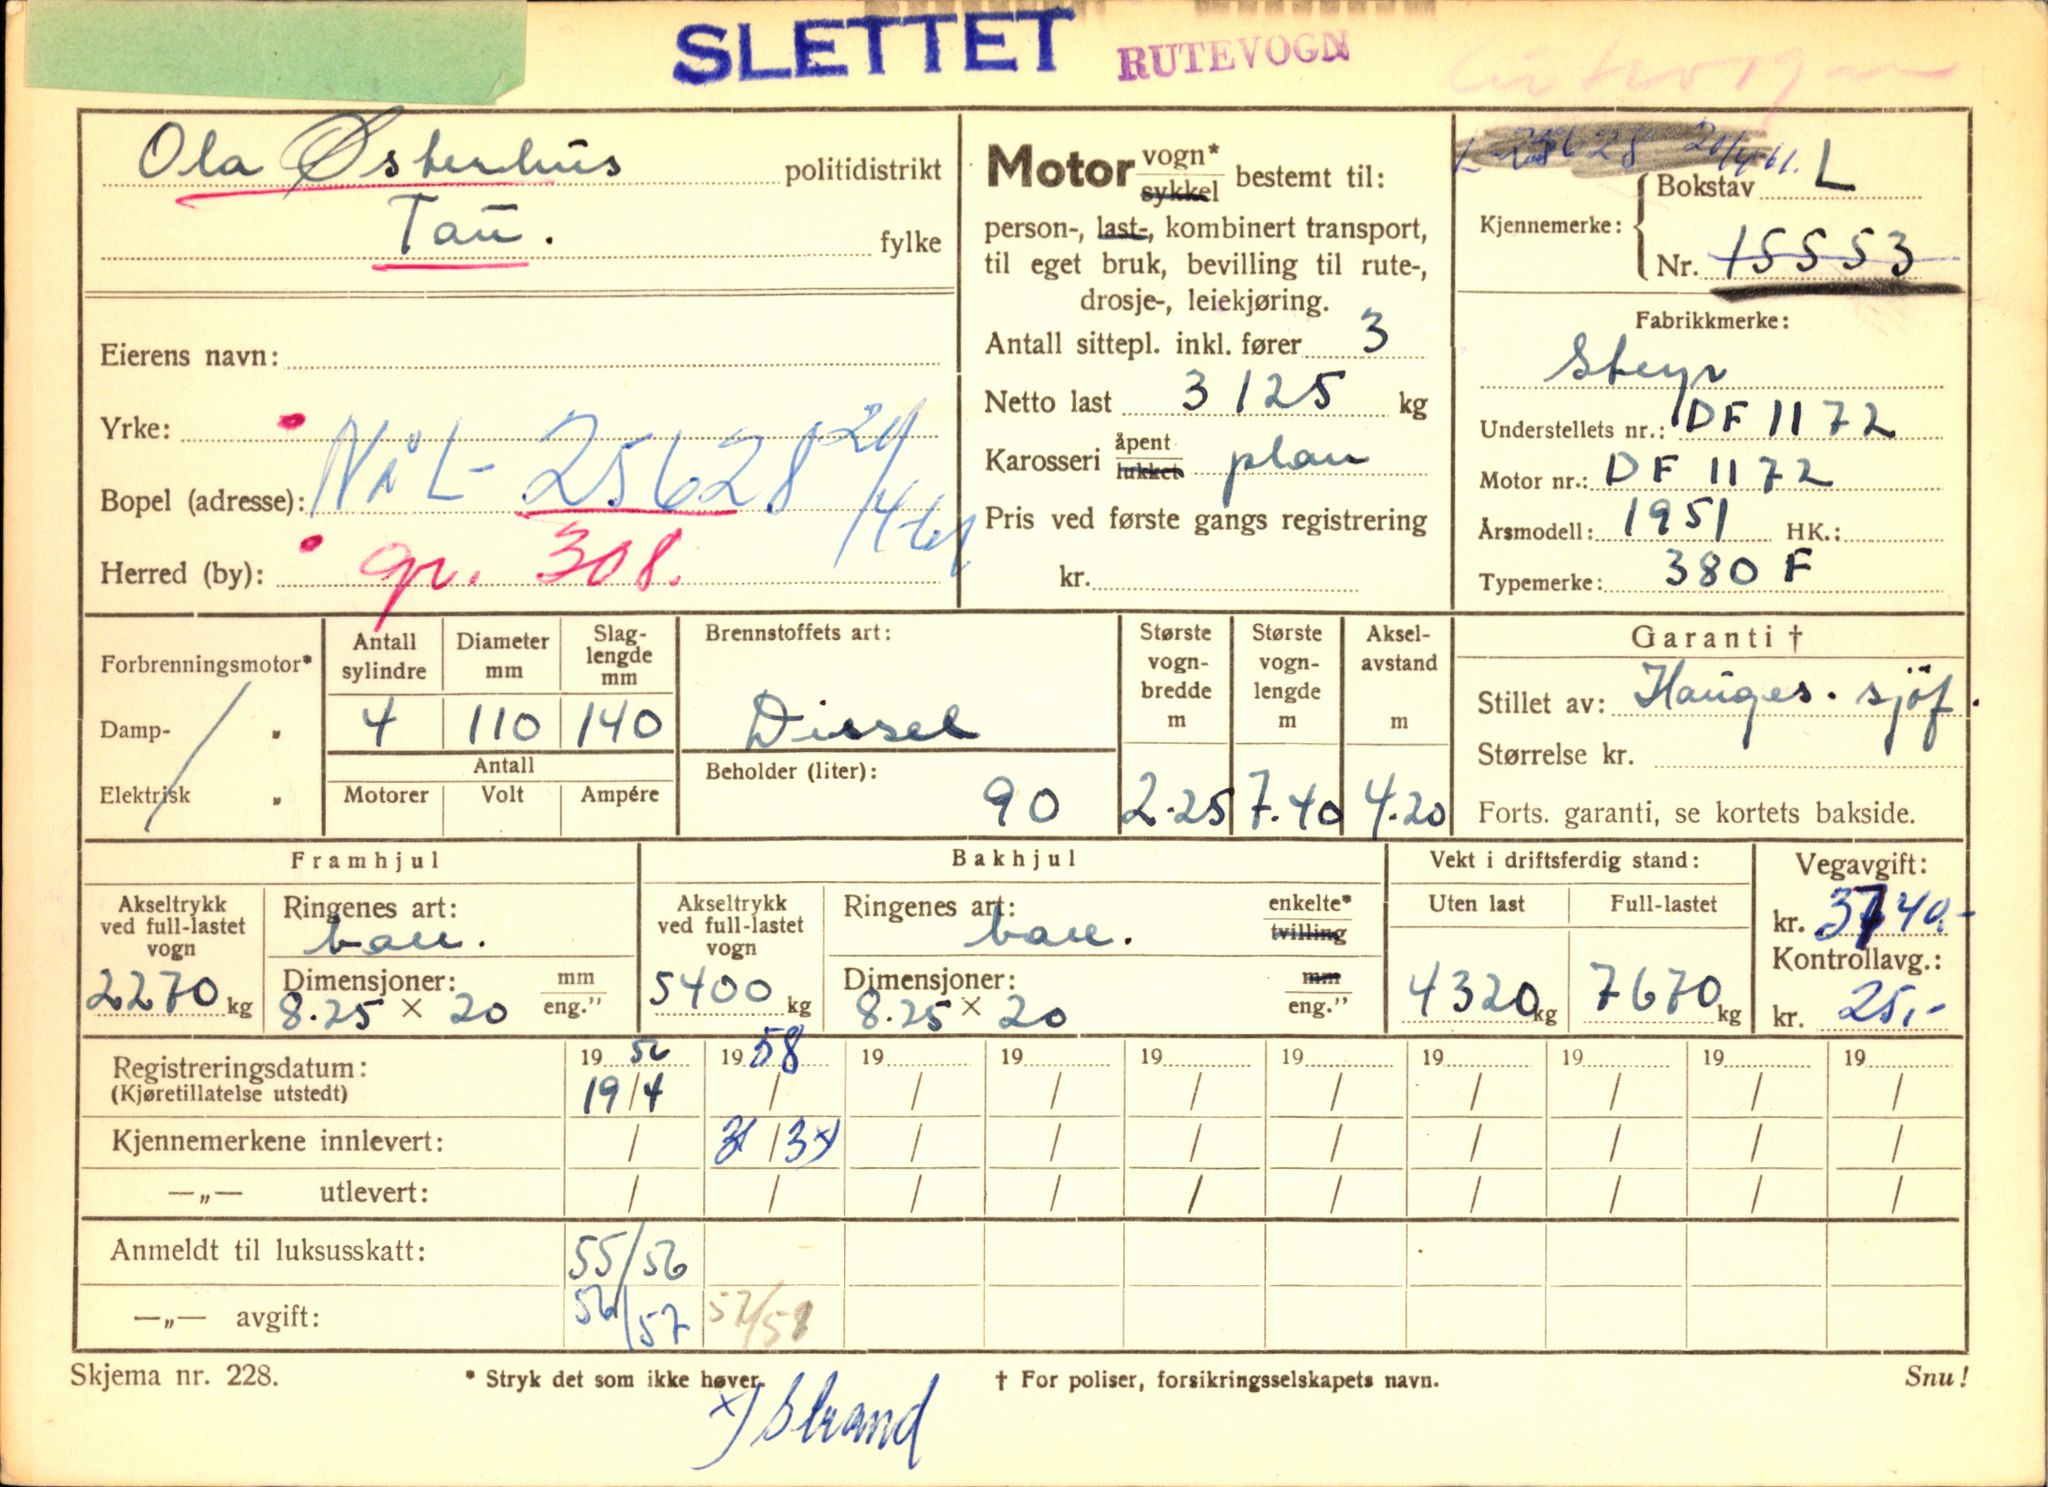 SLETTET RUTEVOGN
Ola Østerhus politidistrikt
Tau. fylke
Eierens navn:
Yrke:
Nå L- 25628 24/4-61
Bopel (adresse):
Herred (by): gr. 308.
Motor vogn* sykkel bestemt til:
person-, last-, kombinert transport,
til eget bruk, bevilling til rute-,
drosje-, leiekjøring.
Antall sittepl. inkl. fører 3
Netto last 3125 kg
Karosseri åpent lukket plan
Pris ved første gangs registrering
kr.
L 25628
Kjennemerke: Bokstav L
Nr. 15553
Fabrikkmerke:
Steyr
Understellets nr.: DF 1172
Motor nr.: DF 1172
Årsmodell: 1951 HK.:
Typemerke: 380 F
Forbrenningsmotor*
Damp- "
Elektrisk "
Antall sylindre Diameter mm Slag-lengde mm
4 110 140
Antall
Motorer Volt Ampére
Brennstoffets art:
Diesel
Beholder (liter):
90
Største vogn-bredde m Største vogn-lengde m Aksel-avstand m
2.25 7.40 4.20
Garanti †
Stillet av: Hauges. sjöf.
Størrelse kr.
Forts. garanti, se kortets bakside.
Framhjul
Akseltrykk ved full-lastet vogn
2270 kg
Ringenes art:
Dimensjoner: mm
8.25 × 20 eng."
Bakhjul
Akseltrykk ved full-lastet vogn
5400 kg
Ringenes art: enkelte*
tvilling
Dimensjoner: mm
8.25 × 20 eng."
Vekt i driftsferdig stand:
Uten last Full-lastet
4320 kg 7670 kg
Vegavgift:
kr. 3740,-
Kontrollavg.:
kr. 25,-
Registreringsdatum: 19 56 19 58 19 19 19 19 19 19 19 19
(Kjøretillatelse utstedt) 19/4 / / / / / / / / /
Kjennemerkene innlevert: / 31/3 x) / / / / / / / /
—„— utlevert: / / / / / / / / / /
Anmeldt til luksusskatt: 55/56
—„— avgift: 56/57 57/58
Skjema nr. 228. * Stryk det som ikke høver. † For poliser, forsikringsselskapets navn. Snu!
x) Strand